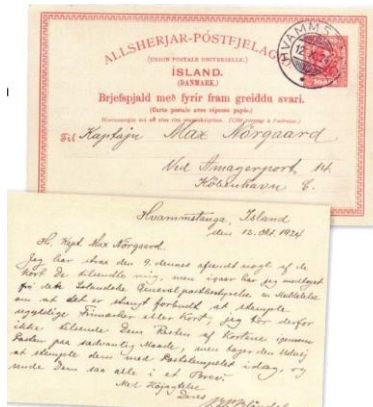 ALLSHERJAR-PÓSTFJELAG
(UNION POSTALE UNIVERSELLE.)
ÍSLAND.
(DANMARK.)
Brjefspjald með fyrir fram greiddu svari.
(Carte postale avec réponse payée.)
Til Kaptajn Max Nörgaard
Ved Amagerport 14.
København
Hvammstanga, Island
den 12. Okt. 1924
Hr. Kapt. Max Nörgaard.
Jeg har den 9. dennes afsendt nogle af de
Kort De tilsendte mig, men igaar har jeg modtaget
fra det Islandske Generalpostbestyrelse en Meddelelse
om at det er strengt forbudt at stemple
ugyldige Frimærker eller Kort, jeg tör derfor
ikke tilsende Dem Resten af Kortene igennem
Posten paa sædvanlig Maade, men
at stemple dem med Poststemplet idag, og
sende Dem saa alle i et Brev.
Med Højagtelse
Deres